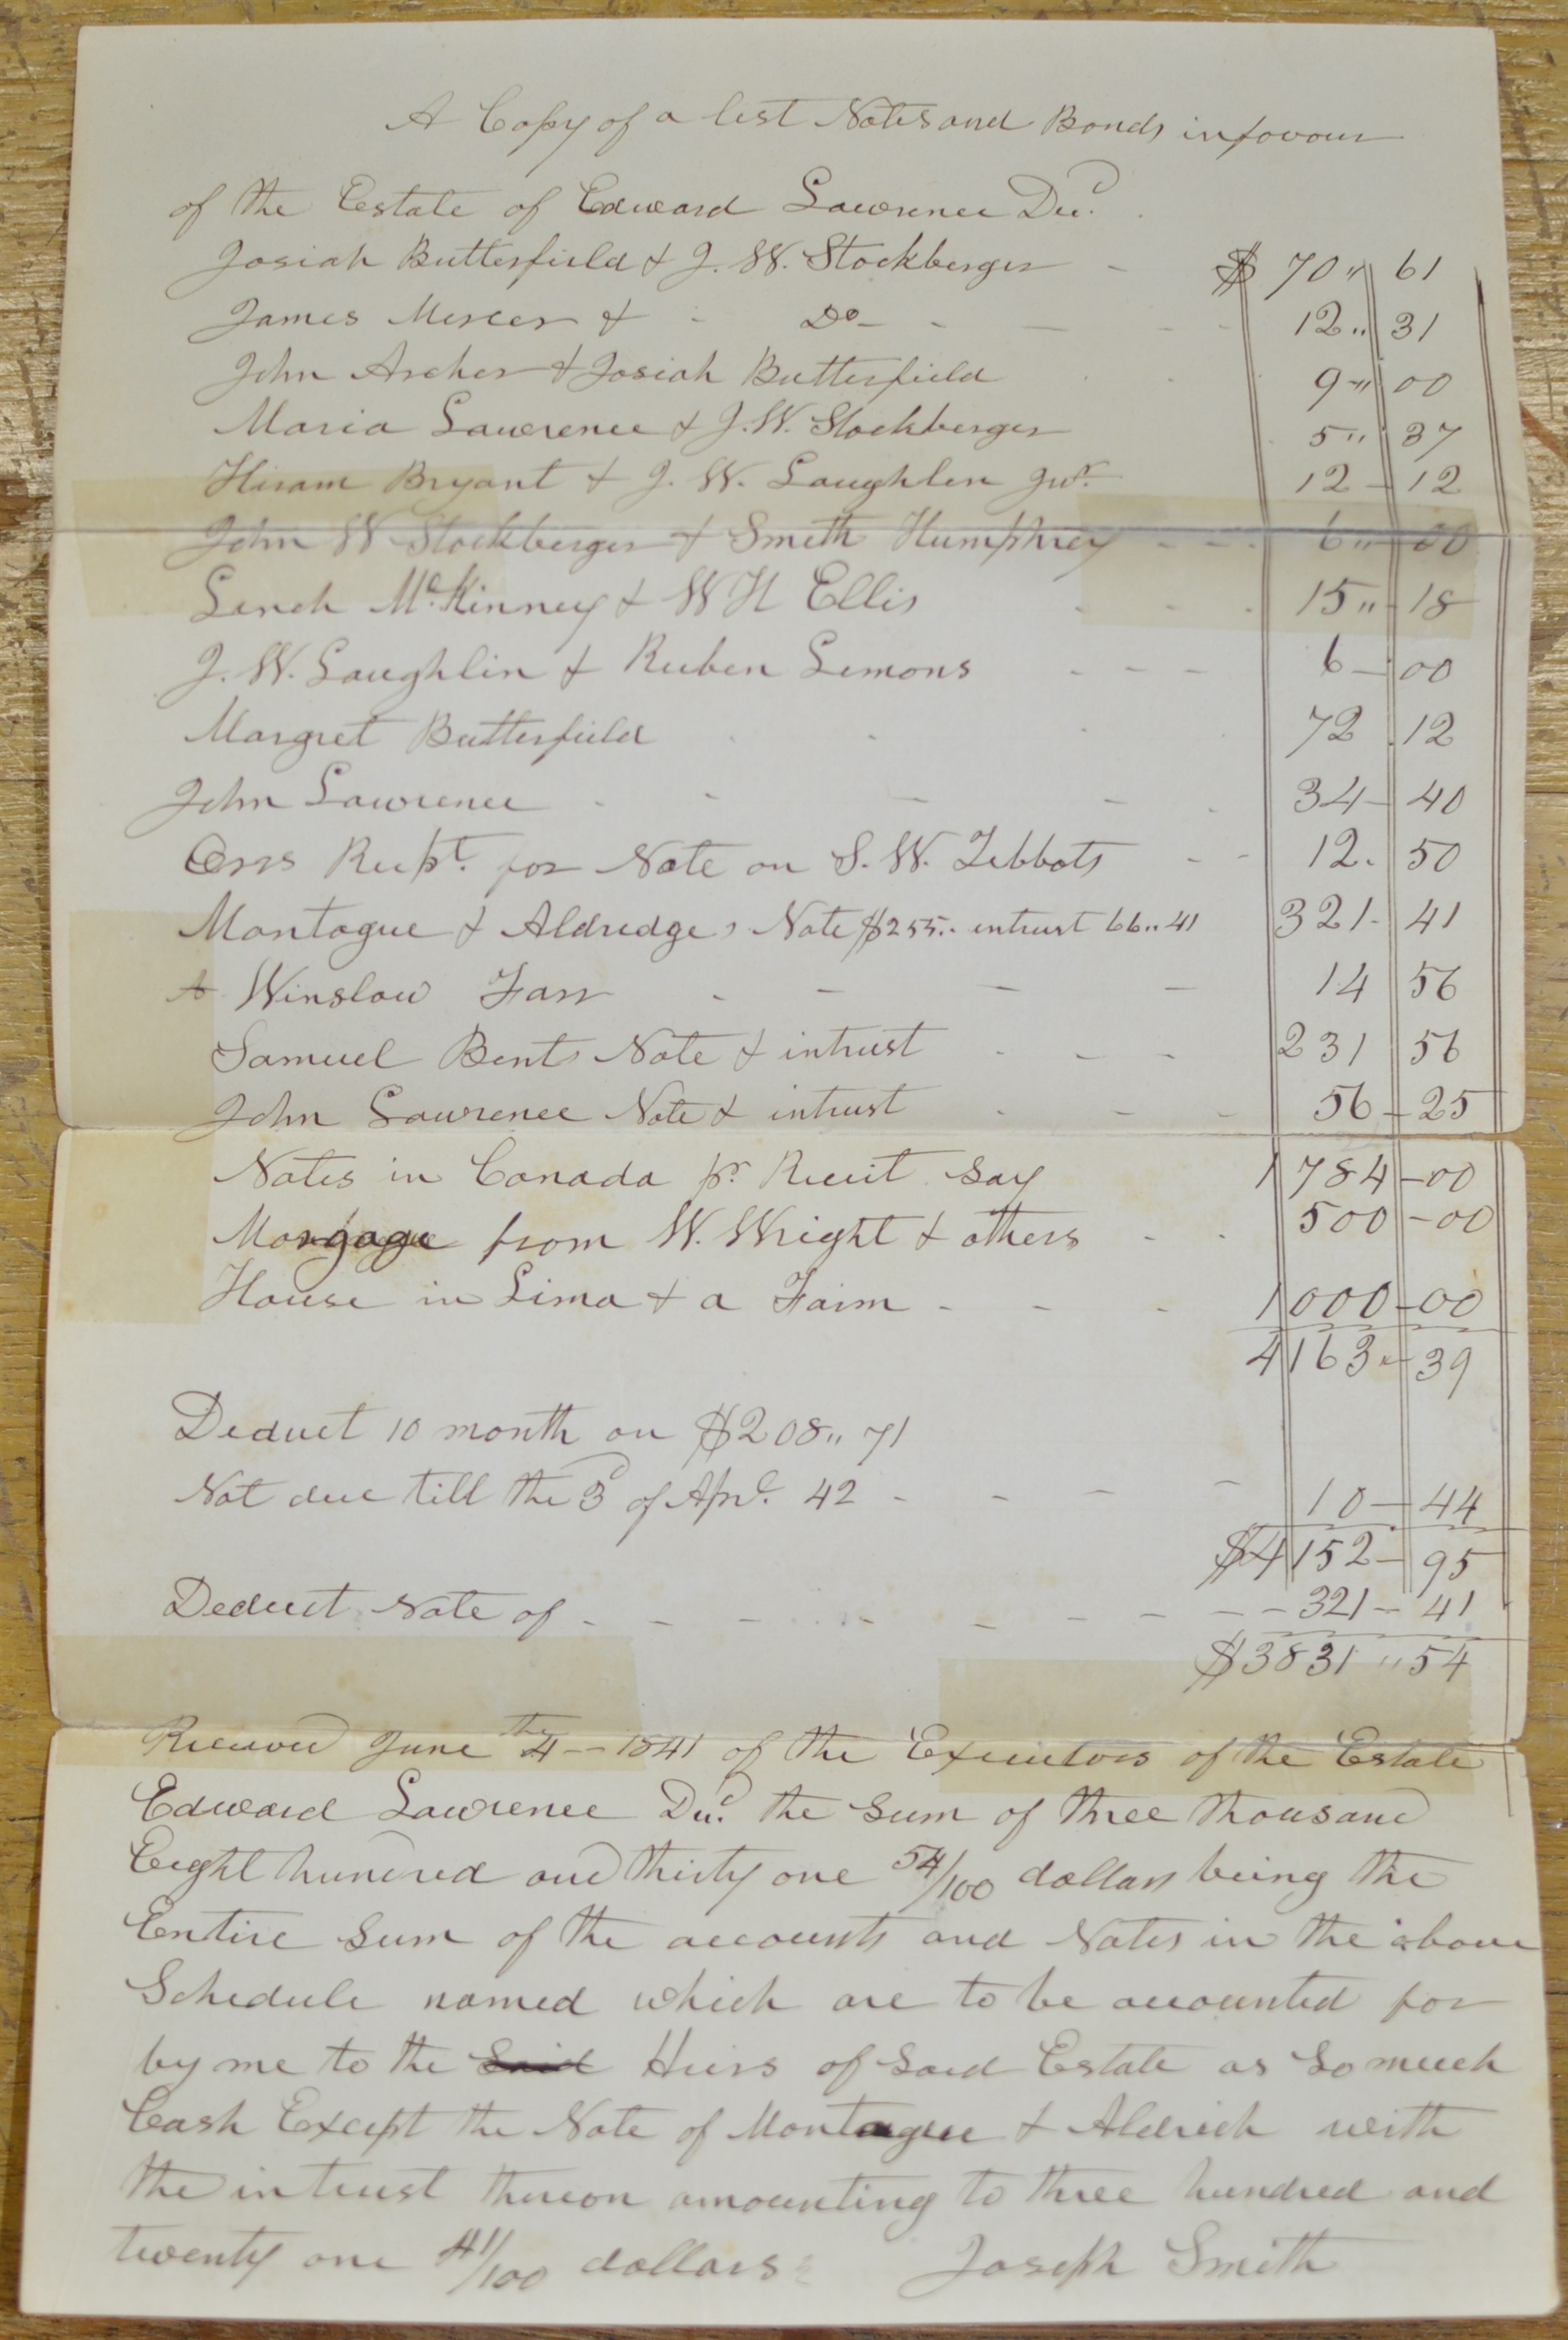 A Copy of a list Notes and Bonds in favour
of the Estate of Edward Lawrence Decd.
Josiah Butterfield & J. W. Stockberger - $ 70" 61
James Mercer & - Do - - - - 12.. 31
John Archer & Josiah Butterfield 9-" 00
Maria Lawrence & J. W. Stockberger 5" 37
Hiram Bryant & J. W. Laughlin Jur. 12 - 12
John W Stockberger & Smith Humphrey - - - 6" - 00
Lench McKinney & W H Ellis - - - 15" - 18
J. W. Laughlin & Ruben Lemons - - - 6 - 00
Margret Butterfield 72 . 12
John Lawrence - - - - - 34 - 40
Orrs Recpt. for Note on S. W. Tibbots - - 12. 50
Montague & Aldredges Note $255.. intrust 66.. 41 321 - 41
A Winslow Farr - - - - 14 56
Samuel Bents Note & intrust - - - 231 56
John Lawrence Note & intrust - - - 56 - 25
Notes in Canada pr. Receit say 1784 - 00
Morgage from W. Wright & others - - 500 - 00
House in Lima & a Farm - - - 1000 - 00
4163 - 39
Deduct 10 month on $208" 71
Not due till the 3d of Aprl. 42 - - - - 10 - 44
$4152 - 95
Deduct Note of - - - - - - - - - 321 - 41
$3831 " 54
Received June 4th - 1841 of the Executors of the Estate
Edward Lawrence Decd. the sum of three thousand
Eight hundred and thirty one 54/100 dollars being the
Entire sum of the accounts and Notes in the above
Schedule named which are to be accounted for
by me to the said Heirs of said Estate as so much
Cash Except the Note of Montague & Aldrich with
the intrust thereon amounting to three hundred and
twenty one 41/100 dollars Joseph Smith